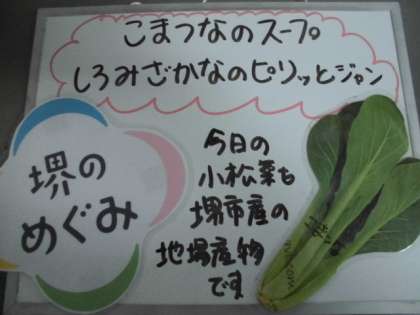 こまつなのスープ
しろみざかなのピリッとジャン
堺の
めぐみ
今日の
小松菜も
堺市産の
地場産物
です